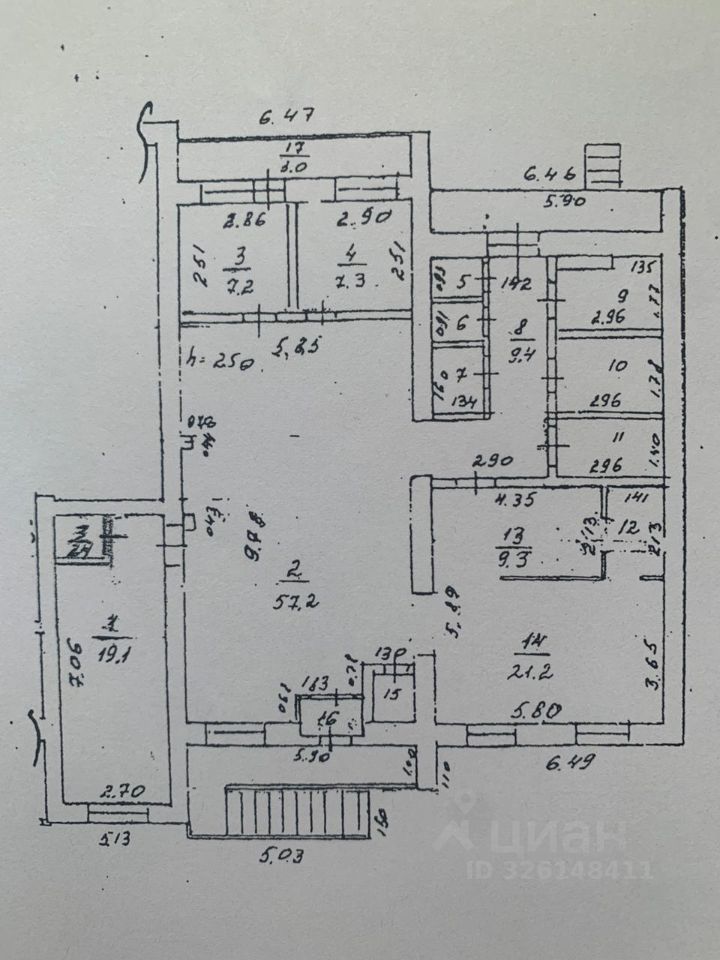 6.47
17
6.46
5.90
2.86
2.90
251
3
7.2
4
7.3
251
5
142
135
9
1.77
2.96
6
8
9.4
h=250
5.85
7
134
10
1.78
296
11
1.40
290
296
4.35
141
043
9.78
13
9.3
2.13
12
2.13
2
57.2
1
19.1
7.06
5.89
14
21.2
3.65
130
0.78
183
15
16
5.80
5.90
1.00
110
6.49
2.70
5.13
150
5.03
циан
ID 326148411